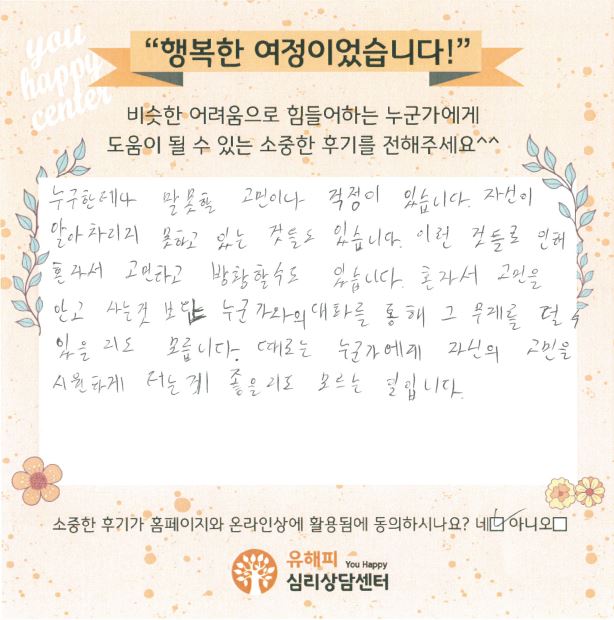 you
happy
center
“행복한 여정이었습니다!”
비슷한 어려움으로 힘들어하는 누군가에게
도움이 될 수 있는 소중한 후기를 전해주세요^^
누구한테나 말못할 고민이나 걱정이 있습니다. 자신이
알아차리지 못하고 있는 것들도 있습니다. 이런 것들로 인해
혼자서 고민하고 방황할수도 있습니다. 혼자서 고민을
안고 사는것 보단 누군가와의 대화를 통해 그 무게를 덜 수
있을 지도 모릅니다. 때로는 누군가에게 자신의 고민을
시원하게 터는게 좋을지도 모르는 일입니다.
소중한 후기가 홈페이지와 온라인상에 활용됨에 동의하시나요? 네 아니오
유해피 You Happy
심리상담센터